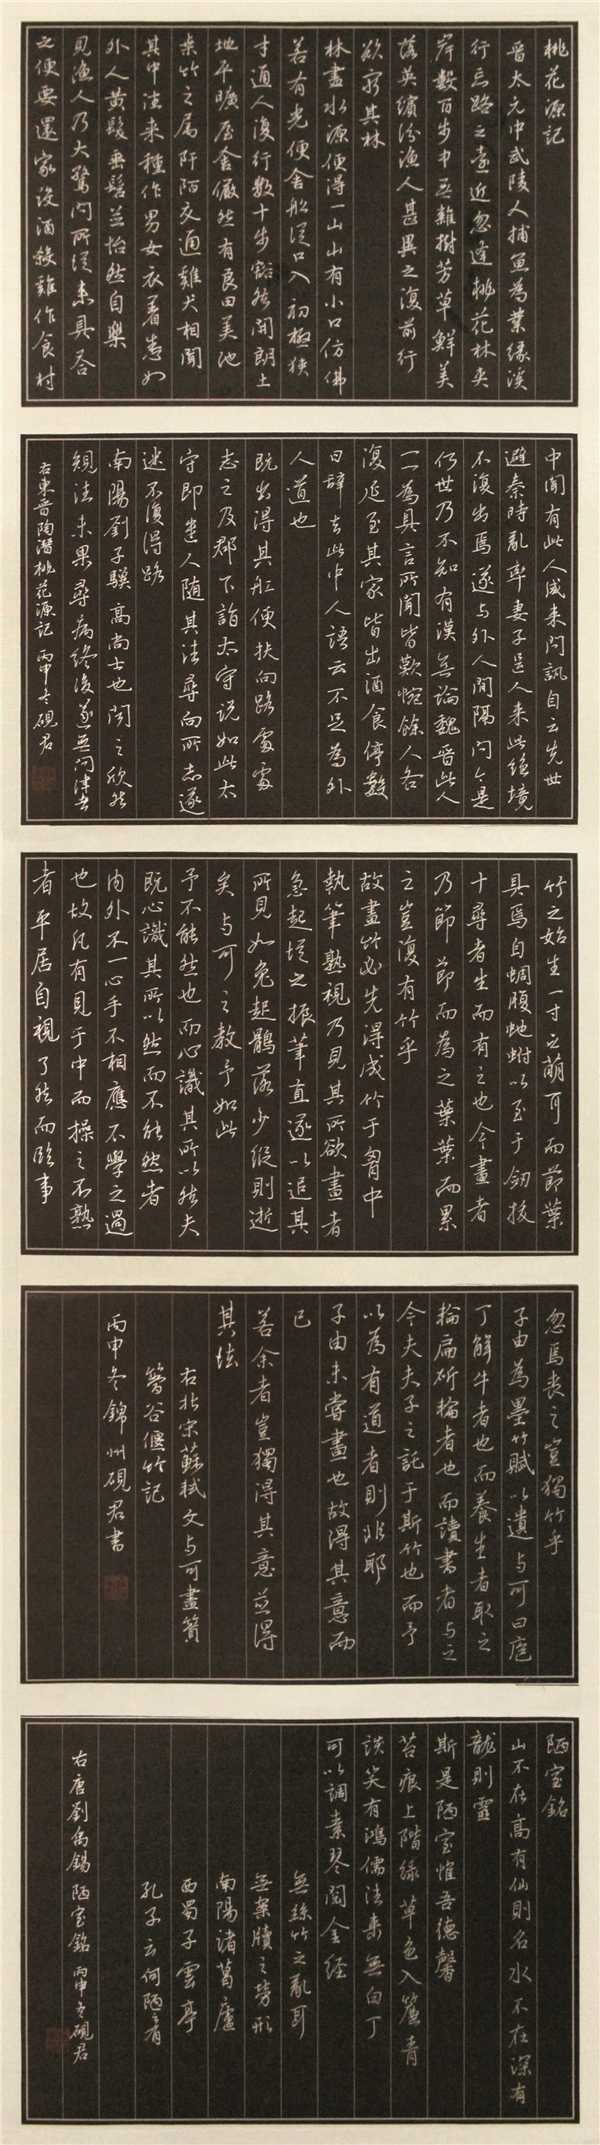 桃花源記
晉太元中武陵人捕魚為業緣溪
行忘路之遠近忽逢桃花林夾
岸數百步中無雜樹芳草鮮美
落英繽紛漁人甚異之復前行
欲窮其林
林盡水源便得一山山有小口仿佛
若有光便舍船從口入初極狹
才通人復行數十步豁然開朗土
地平曠屋舍儼然有良田美池
桑竹之屬阡陌交通雞犬相聞
其中往來種作男女衣著悉如
外人黃髮垂髫並怡然自樂
見漁人乃大驚問所從來具答
之便要還家設酒殺雞作食村
中聞有此人咸來問訊自云先世
避秦時亂率妻子邑人來此絕境
不復出焉遂與外人間隔問今是
何世乃不知有漢無論魏晉此人
一一為具言所聞皆歎惋餘人各
復延至其家皆出酒食停數
日辭去此中人語云不足為外
人道也
既出得其船便扶向路處處
志之及郡下詣太守說如此太
守即遣人隨其往尋向所志遂
迷不復得路
南陽劉子驥高尚士也聞之欣然
規往未果尋病終後遂無問津者
右東晉陶潛桃花源記 丙申冬硯君
竹之始生一寸之萌耳而節葉
具焉自蜩腹蛇蚹以至于劍拔
十尋者生而有之也今畫者
乃節節而為之葉葉而累
之豈復有竹乎
故畫竹必先得成竹于胸中
執筆熟視乃見其所欲畫者
急起從之振筆直遂以追其
所見如兔起鶻落少縱則逝
矣與可之教予如此
予不能然也而心識其所以然夫
既心識其所以然而不能然者
內外不一心手不相應不學之過
也故凡有見于中而操之不熟
者平居自視了然而臨事
忽焉喪之豈獨竹乎
子由為墨竹賦以遺與可曰庖
丁解牛者也而養生者取之
輪扁斫輪者也而讀書者與之
今夫夫子之託于斯竹也而予
以為有道者則非耶
子由未嘗畫也故得其意而
已
若余者豈獨得其意並得
其法
右北宋蘇軾文與可畫篔
簹谷偃竹記
丙申冬錦州硯君書
陋室銘
山不在高有仙則名水不在深有
龍則靈
斯是陋室惟吾德馨
苔痕上階綠草色入簾青
談笑有鴻儒往來無白丁
可以調素琴閱金經
無絲竹之亂耳
無案牘之勞形
南陽諸葛廬
西蜀子雲亭
孔子云何陋有
右唐劉禹錫陋室銘 丙申冬硯君